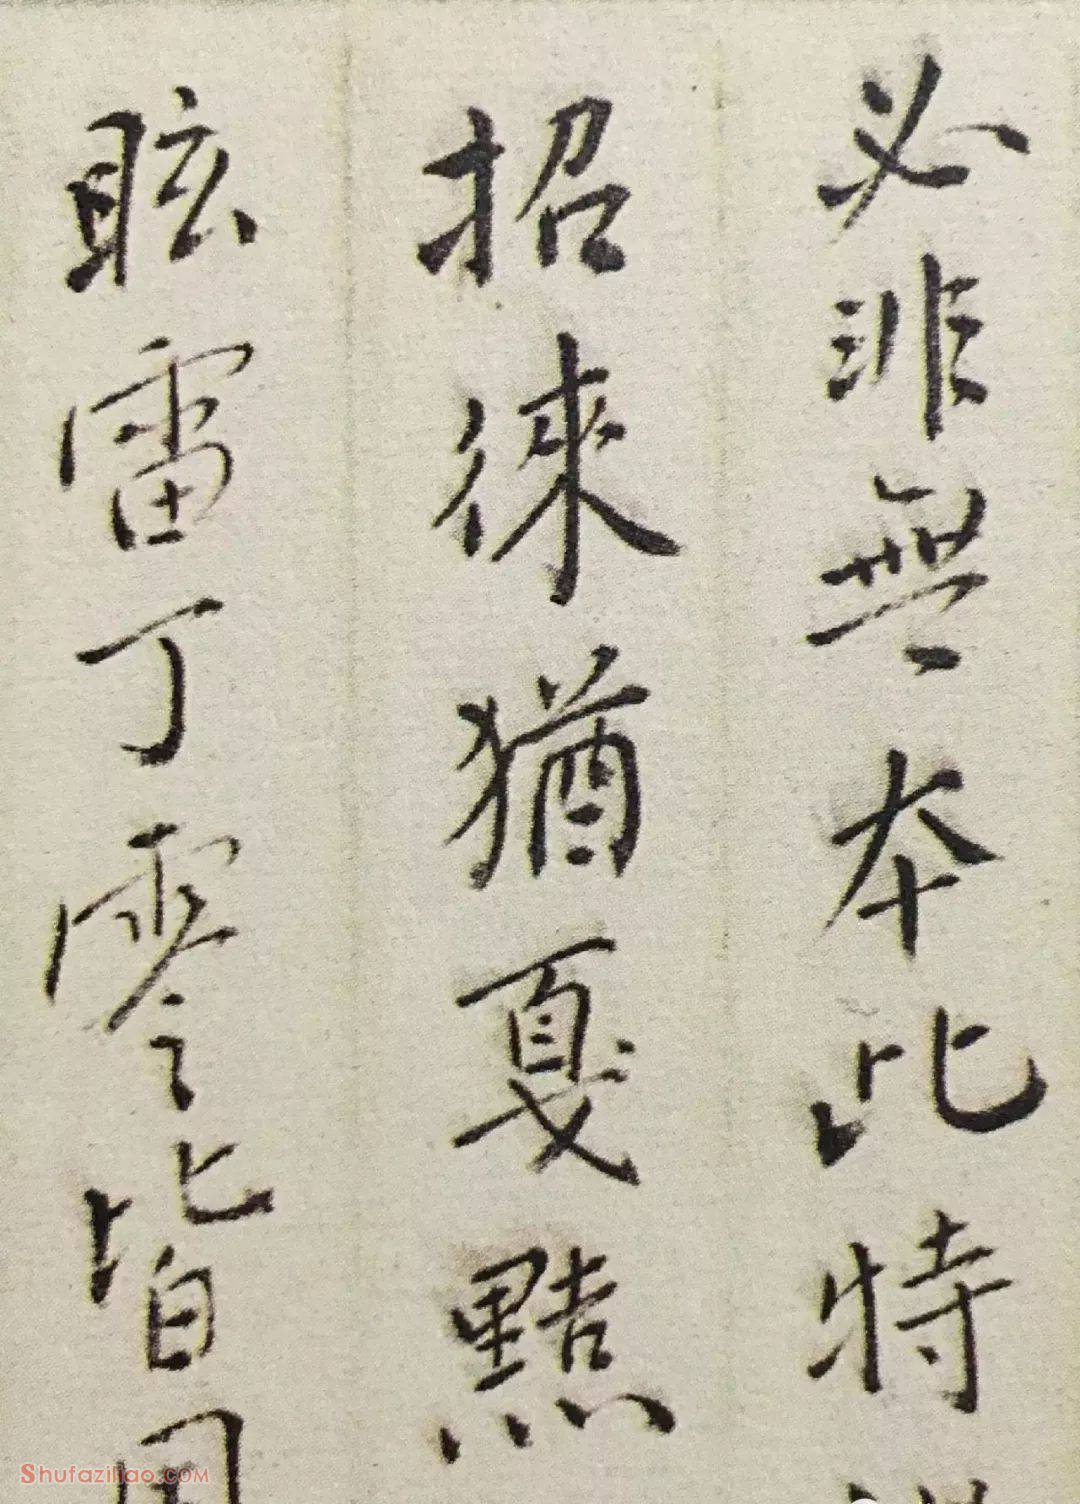 必非無本比特
招徠猶戛黠
眩雷丁零皆
Shufaziliao.COM